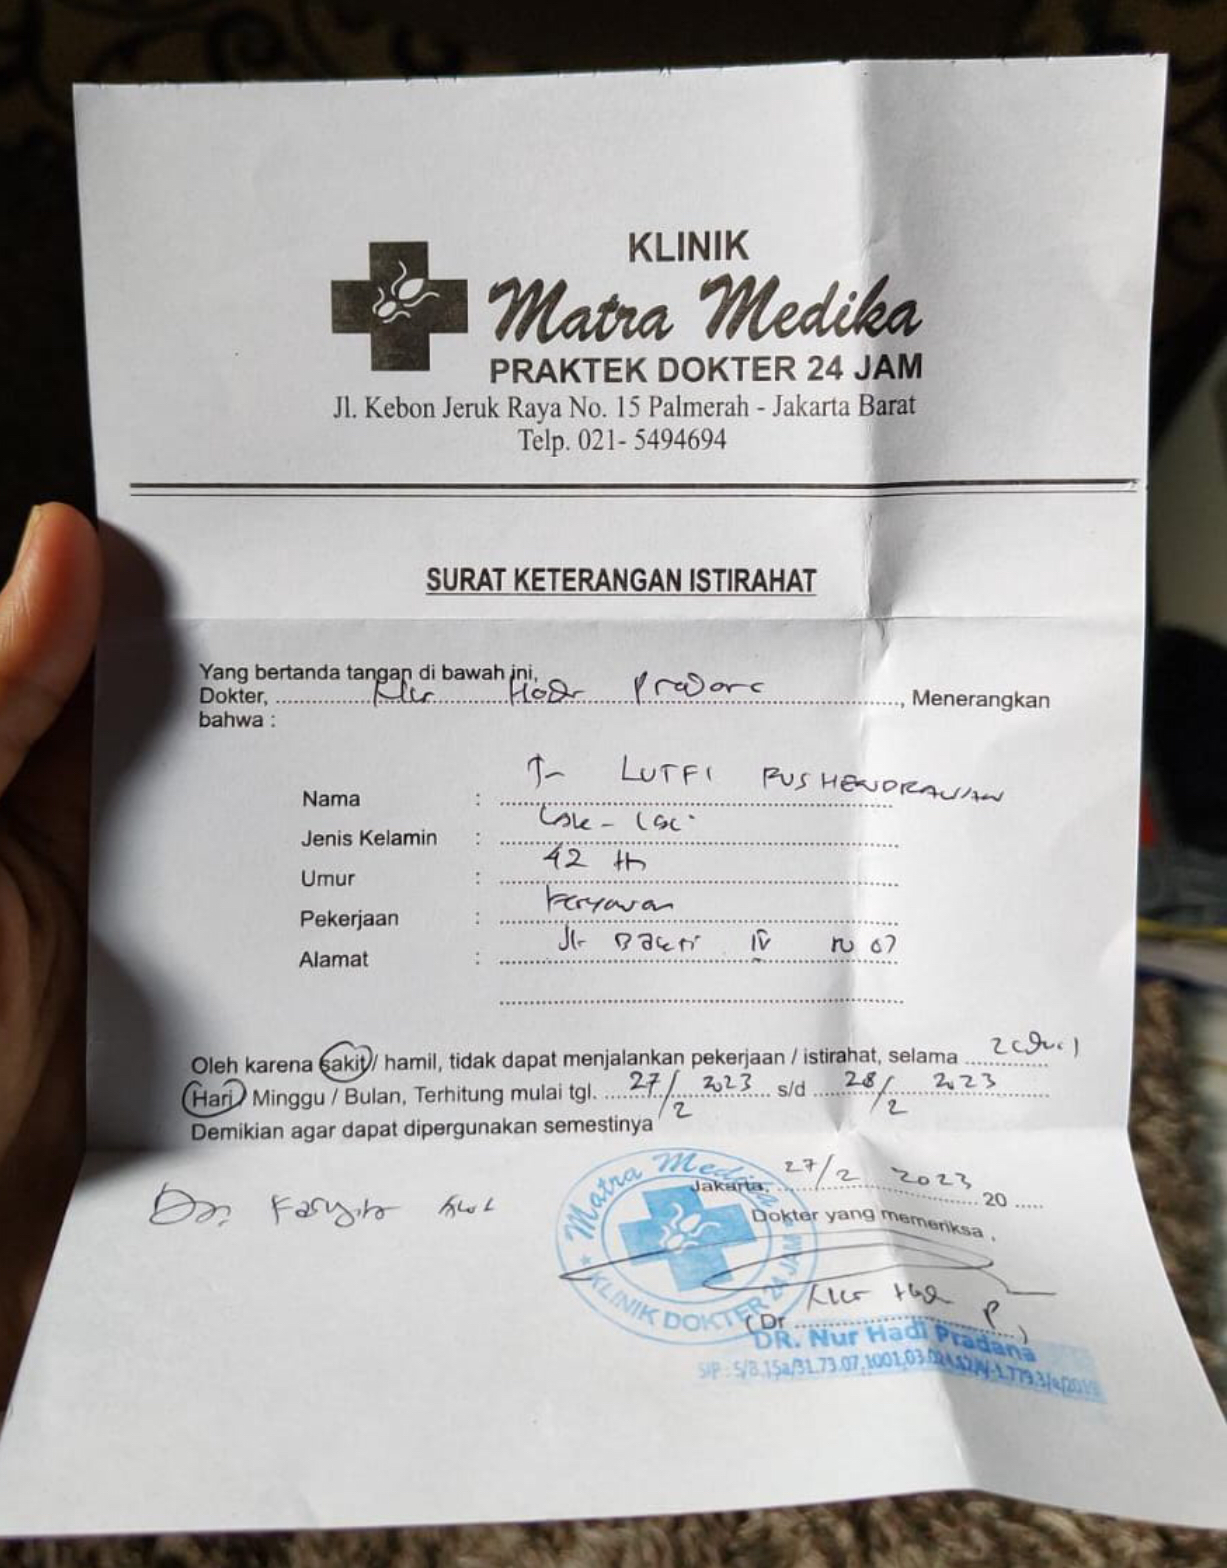 KLINIK
Matra Medika
PRAKTEK DOKTER 24 JAM
Jl. Kebon Jeruk Raya No. 15 Palmerah - Jakarta Barat
Telp. 021- 5494694
SURAT KETERANGAN ISTIRAHAT
Yang bertanda tangan di bawah ini,
Dokter, Nur Hadi Pradana, Menerangkan
bahwa :
Nama : LUTFI
Jenis Kelamin : Laki-laki
Umur : 42 th
Pekerjaan : Karyawan
Alamat : Jl. Bakti IV no 07
Oleh karena sakit / hamil, tidak dapat menjalankan pekerjaan / istirahat, selama 2 (dua)
Hari / Minggu / Bulan, Terhitung mulai tgl. 27/2 2023 s/d 28/2 2023
Demikian agar dapat dipergunakan semestinya
Matra Medika
KLINIK DOKTER 24 JAM
Jakarta, 27/2 2023 20
Dokter yang memeriksa,
(Dr Nur Hadi P)
DR. Nur Hadi Pradana